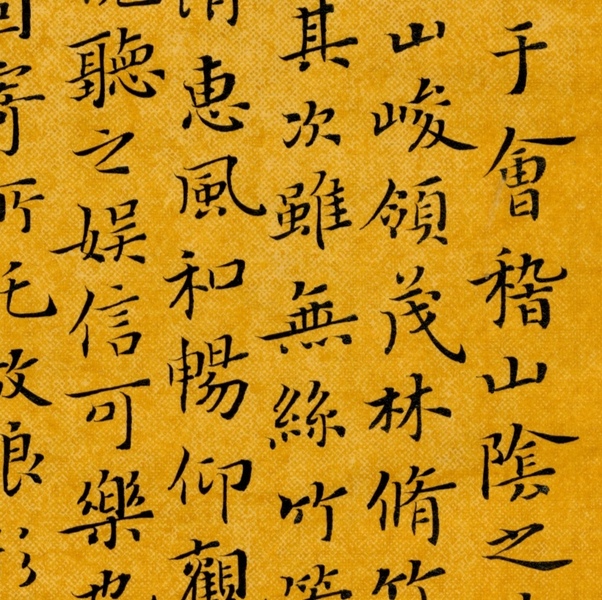 于會稽山陰之
山峻領茂林脩竹
其次雖無絲竹管
惠風和暢仰觀
聽之娛信可樂也
寄所託放浪形